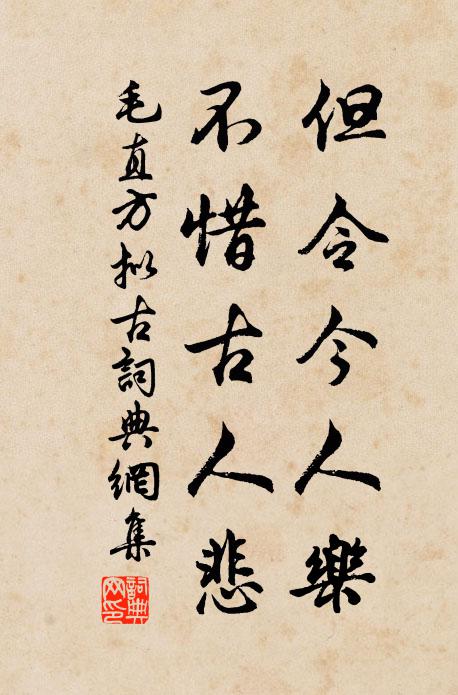 但令今人樂
不惜古人悲
毛直方拟古詞典網集
詞典網印